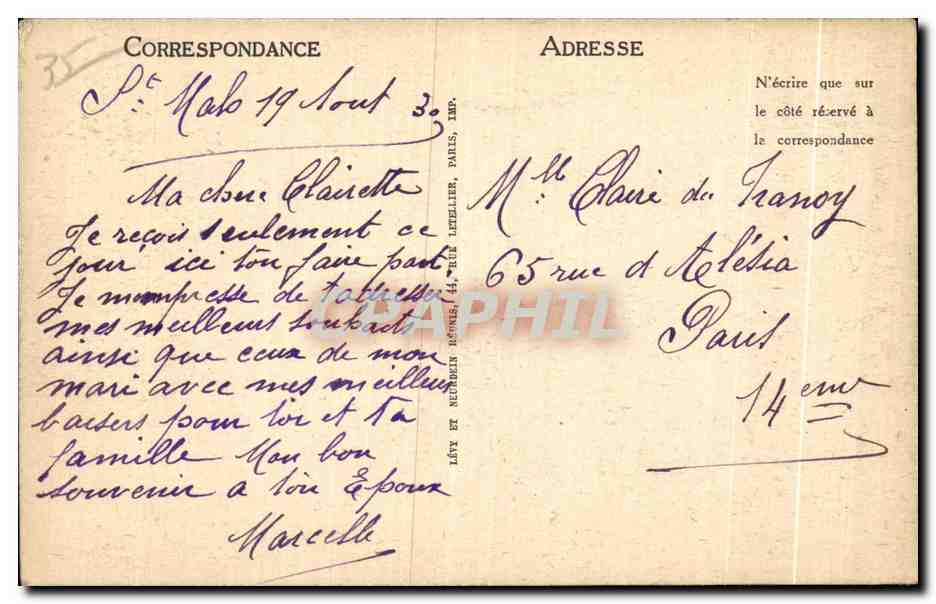 35
CORRESPONDANCE
St Malo 19 Aout 30
Ma chere Clairette
Je reçois seulement ce
jour ici ton faire part
Je mempresse de tadresser
mes meilleurs souhaits
ainsi que ceux de mon
mari avec mes meilleurs
baisers pour toi et ta
famille Mon bon
souvenir a ton Epoux
Marcelle
LÉVY ET NEURDEIN RÉUNIS, 44, RUE LETELLIER, PARIS, IMP.
ADRESSE
N'écrire que sur
le côté réservé à
la correspondance
Mlle Claire du Tranoy
65 rue d Alésia
Paris
14 eme
CPAPHIL